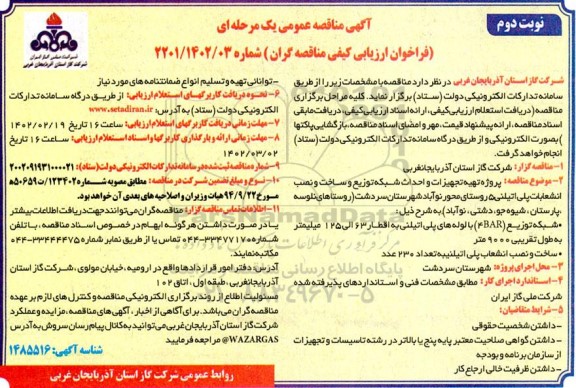 نوبت دوم
آگهی مناقصه عمومی یک مرحله ای
(فراخوان ارزیابی کیفی مناقصه گران) شماره ۲۲۰۱/۱۴۰۲/۰۳
شرکت ملی گاز ایران
شرکت گاز استان آذربایجان غربی
شرکت گاز استان آذربایجان غربی در نظر دارد مناقصه با مشخصات زیر را از طریق
سامانه تدارکات الکترونیکی دولت (ستاد) برگزار نماید. کلیه مراحل برگزاری
مناقصه (دریافت استعلام ارزیابی کیفی، ارائه اسناد ارزیابی کیفی، دریافت مابقی
اسناد مناقصه، ارائه پیشنهاد قیمت، مهر و امضای اسناد مناقصه، بازگشایی پاکتها
) بصورت الکترونیکی و از طریق درگاه سامانه تدارکات الکترونیکی دولت (ستاد)
انجام خواهد گرفت.
۱- مناقصه گزار: شرکت گاز استان آذربایجانغربی
۲- موضوع مناقصه: پروژه تهیه تجهیزات و احداث شبکه توزیع و ساخت و نصب
انشعابات پلی اتیلنی ۵ روستای محور نوآباد شهرستان سردشت (روستاهای نلوسه
،پارستان، شیوه جو، دشتی، نوآباد) به شرح ذیل:
*شبکه توزیع (۴BAR) با لوله های پلی اتیلنی به اقطار ۶۳ الی ۱۲۵ میلیمتر
به طول تقریبی ۹۰۰۰ متر
* ساخت و نصب انشعاب پلی اتیلنی به تعداد ۲۳۰ عدد
۳- محل اجرای پروژه: شهرستان سردشت
۴- استاندارد اجرای کار: مطابق مشخصات فنی و استانداردهای پذیرفته شده
شرکت ملی گاز ایران
۵- شرایط متقاضیان:
- داشتن شخصیت حقوقی
- داشتن گواهی صلاحیت معتبر پایه پنج یا بالاتر در رشته تاسیسات و تجهیزات
از سازمان برنامه و بودجه
- داشتن ظرفیت خالی ارجاع کار
- توانائی تهیه و تسلیم انواع ضمانتنامه های مورد نیاز
۶- نحوه دریافت کاربرگهای استعلام ارزیابی: از طریق درگاه سامانه تدارکات
الکترونیکی دولت (ستاد) به آدرس: www.setadiran.ir
۷- مهلت زمانی دریافت کاربرگهای استعلام ارزیابی: ساعت ۱۶ تاریخ ۱۴۰۲/۰۲/۱۹
۸- مهلت زمانی ارائه و بارگذاری کاربرگها و اسناد استعلام ارزیابی: ساعت ۱۶ تاریخ
۱۴۰۲/۰۳/۰۲
۹- شماره مناقصه ثبت شده در سامانه تدارکات الکترونیکی دولت (ستاد): ۲۰۰۲۰۹۱۹۳۱۰۰۰۰۲۱
۱۰- نوع و مبلغ تضمین شرکت در مناقصه: مطابق مصوبه شماره ۱۲۳۴۰۲/ت۵۰۶۵۹ه
مورخ ۹۴/۹/۲۲ هیات وزیران و اصلاحیه های بعدی آن خواهد بود.
۱۱- اطلاعات تماس مناقصه گزار: مناقصه گران می توانند جهت دریافت اطلاعات بیشتر
یا در صورت داشتن هرگونه ابهام در خصوص اسناد مناقصه، با تلفن
شماره ۰۴۴-۳۳۴۷۷۱۷۰ تماس یا از طریق نمابر شماره ۰۴۴-۳۳۴۴۴۴۷۵
مکاتبه نمایند.
آدرس: دفتر امور قراردادها واقع در ارومیه، خیابان مولوی، شرکت گاز استان
آذربایجانغربی، طبقه اول، اتاق ۱۰۲
مسئولیت اطلاع از روند برگزاری الکترونیکی مناقصه و کنترل های لازم بر عهده
مناقصه گران می باشد. برای آگاهی از اخبار، آگهی های مناقصه، مزایده و عملکرد
شرکت گاز استان آذربایجان غربی می توانید به کانال پیام رسان سروش به آدرس
@WAZARGAS مراجعه فرمایید
شناسه آگهی: ۱۴۸۵۵۱۶
روابط عمومی شرکت گاز استان آذربایجان غربی